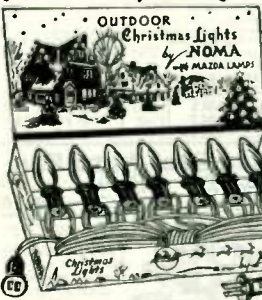 OUTDOOR
Christmas Lights
by NOMA
MAZDA LAMPS
Christmas
Lights